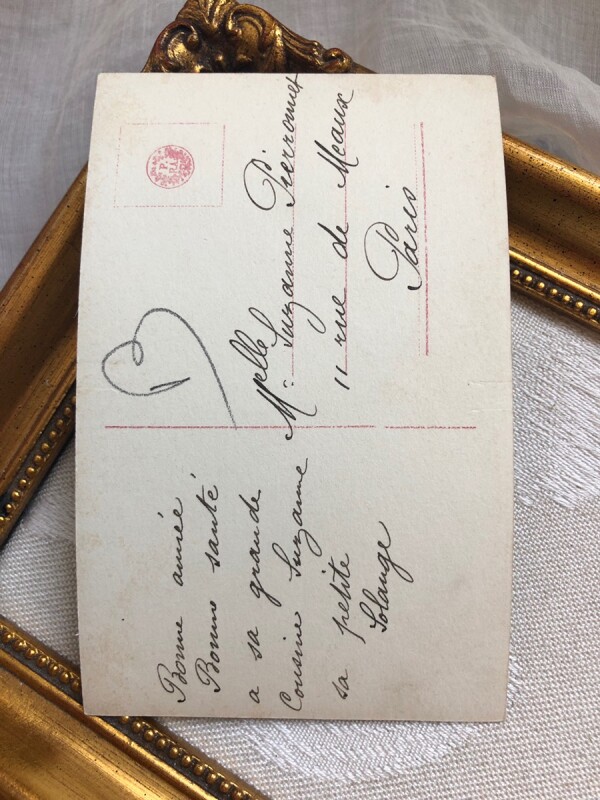 Bonne année
Bonne santé
a sa grande
Cousine Suzanne
sa petite
Solange
Melle Suzanne Pierronnet
11 rue de Meaux
Paris